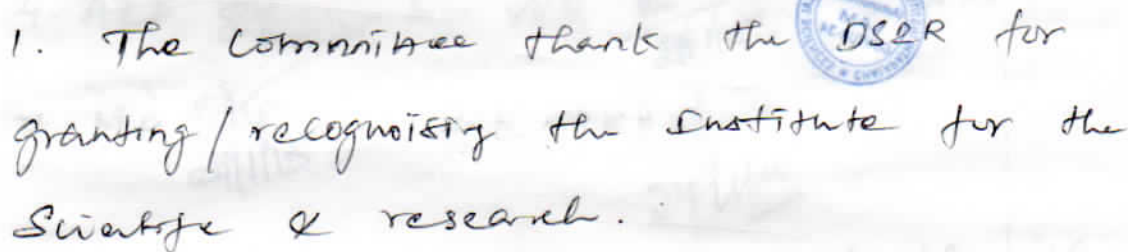 1. The Committee thank the DSIR for
granting/recognoising the Institute for the
Scientific & research.